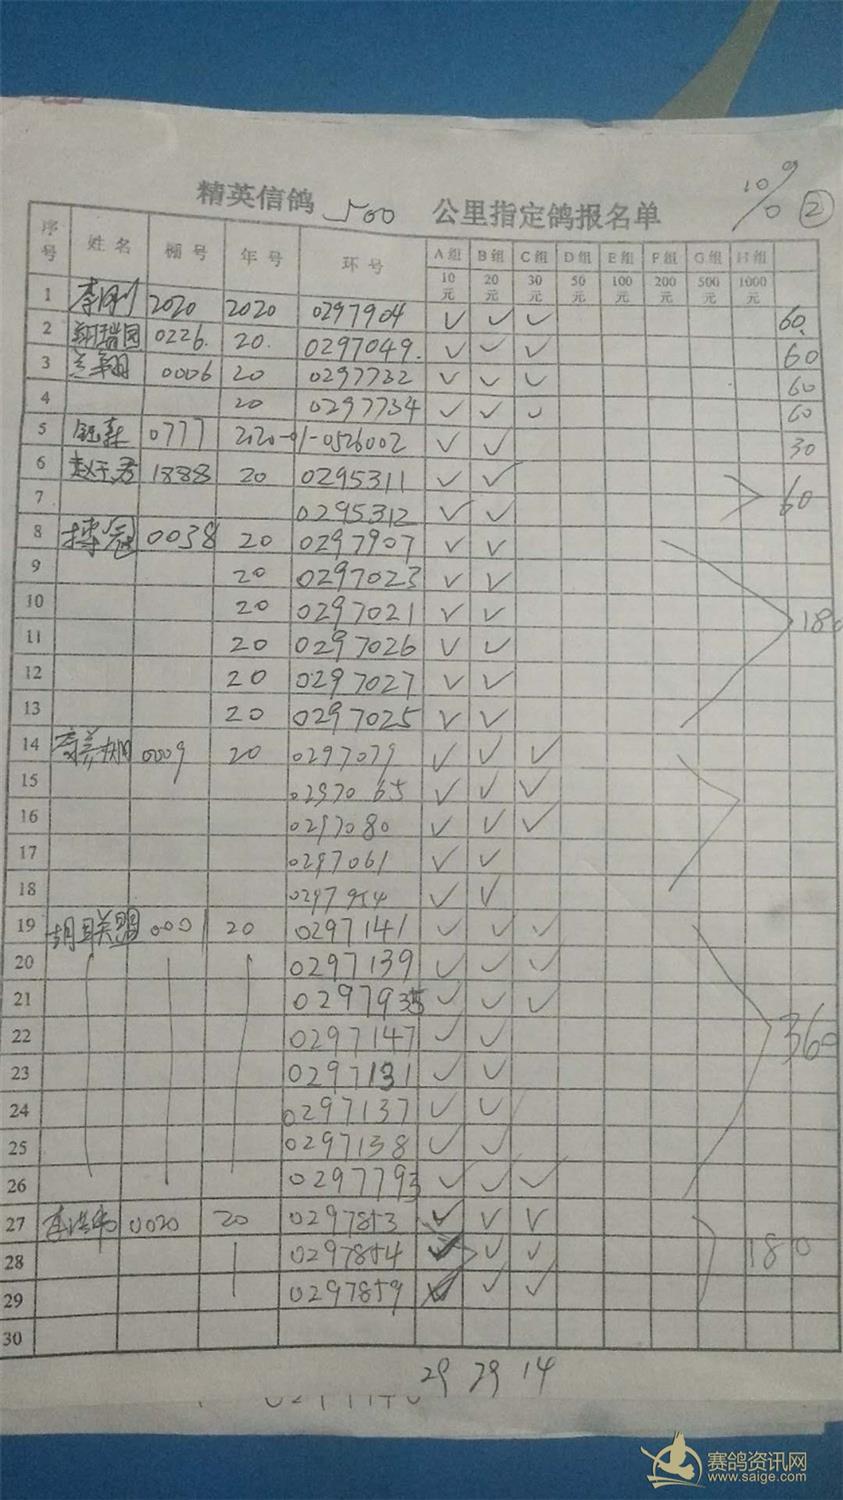 10%
②
精英信鸽 500 公里指定鸽报名单
序号 姓名 棚号 年号 环号 A组 B组 C组 D组 E组 F组 G组 H组
10元 20元 30元 50元 100元 200元 500元 1000元
1 2020 2020 0297904 ✓ ✓ ✓ 60
2 0226. 20. 0297049. ✓ ✓ ✓ 60
3 兰翔 0006 20 0297732 ✓ ✓ ✓ 60
4 20 0297734 ✓ ✓ ✓ 60
5 0777 2020-01-0526002 ✓ ✓ 30
6 1888 20 0295311 ✓ ✓ 60
7 0295312 ✓ ✓
8 博冠 0038 20 0297907 ✓ ✓
9 20 0297023 ✓ ✓
10 20 0297021 ✓ ✓ 180
11 20 0297026 ✓ ✓
12 20 0297027 ✓ ✓
13 20 0297025 ✓ ✓
14 0009 20 0297079 ✓ ✓ ✓
15 0297065 ✓ ✓ ✓
16 0297080 ✓ ✓ ✓
17 0297061 ✓ ✓
18 0297954 ✓ ✓
19 胡联盟 0001 20 0297141 ✓ ✓ ✓
20 0297139 ✓ ✓ ✓
21 0297935 ✓ ✓ ✓
22 0297147 ✓ ✓ 360
23 0297131 ✓ ✓
24 0297137 ✓ ✓
25 0297138 ✓ ✓
26 0297793 ✓ ✓ ✓
27 0020 20 0297853 ✓ ✓ ✓
28 0297854 ✓ ✓ ✓ 180
29 0297859 ✓ ✓ ✓
30
29 29 14
赛鸽资讯网
www.saige.com